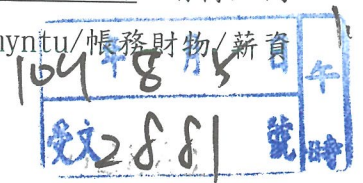 myntu/帳務財物/薪資
104年8月5日午時
受文2881號